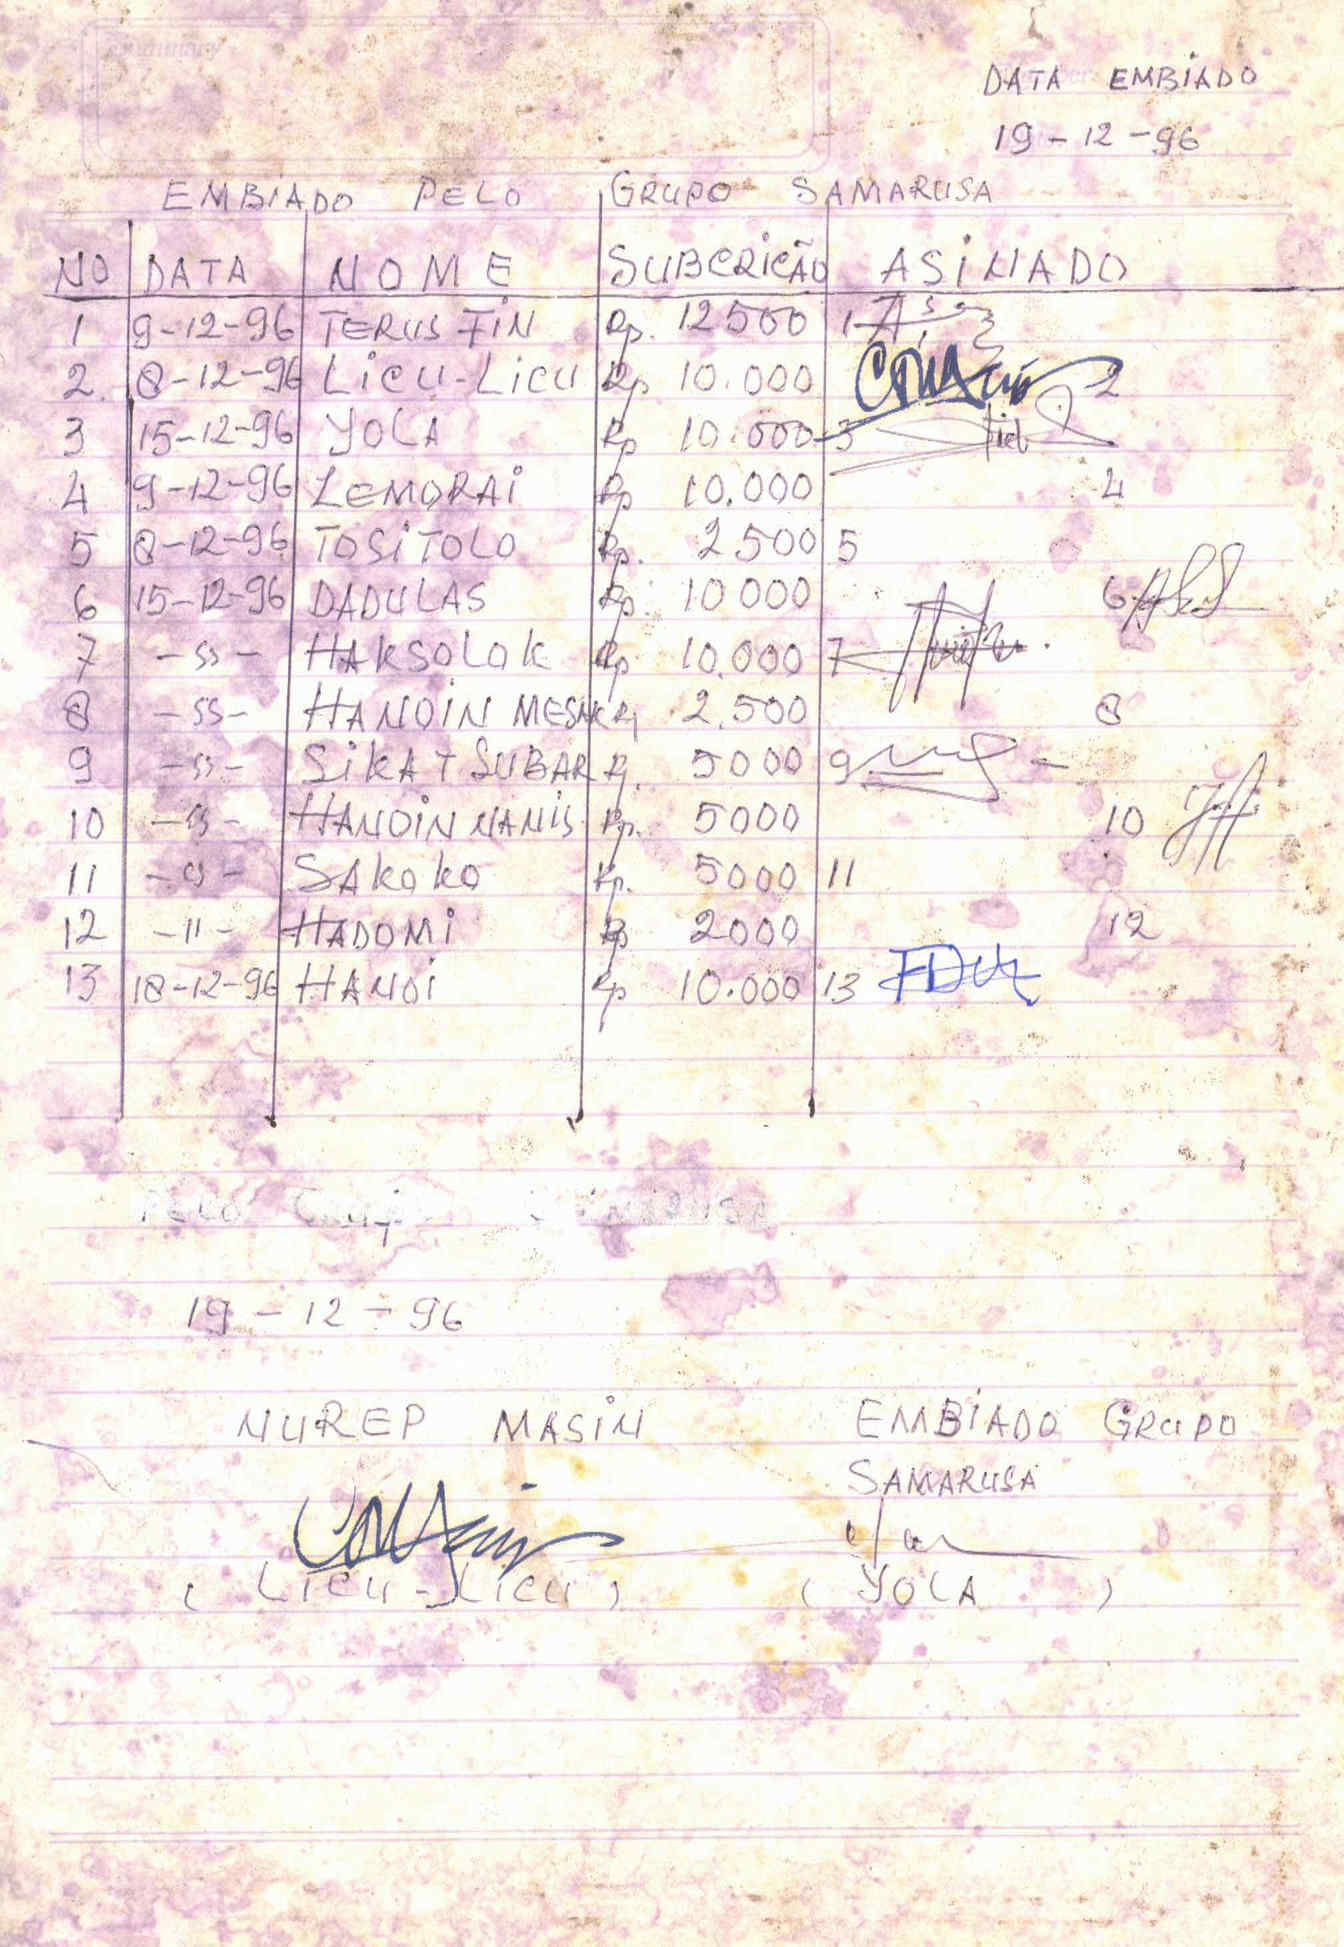 DATA EMBIADO
19-12-96
EMBIADO PELO GRUPO SAMARUSA
NO DATA NOME SUBCRICÃO ASINADO
1 9-12-96 TERUS FIN Rp. 12500 1
2. 8-12-96 LICU-LICU Rp 10.000 2
3 15-12-96 YOLA Rp 10.000 3
4 9-12-96 LEMORAI Rp 10.000 4
5 8-12-96 TOSITOLO Rp. 2500 5
6 15-12-96 DADULAS Rp. 10000 6
7 -ss- HAKSOLOK Rp 10.000 7
8 -ss- HANOIN MESAK Rp 2.500 8
9 -ss- SIKAT SUBAR Rp. 5000 9
10 -ss- HANOIN NANIS Rp. 5000 10
11 -ss- SAKOKO Rp. 5000 11
12 -11- HADOMI Rp 2000 12
13 18-12-96 HANOI Rp 10.000 13
PELO
19-12-96
NUREP MASIN EMBIADO GRUPO
SAMARUSA
(LICU-LICU) (YOLA)